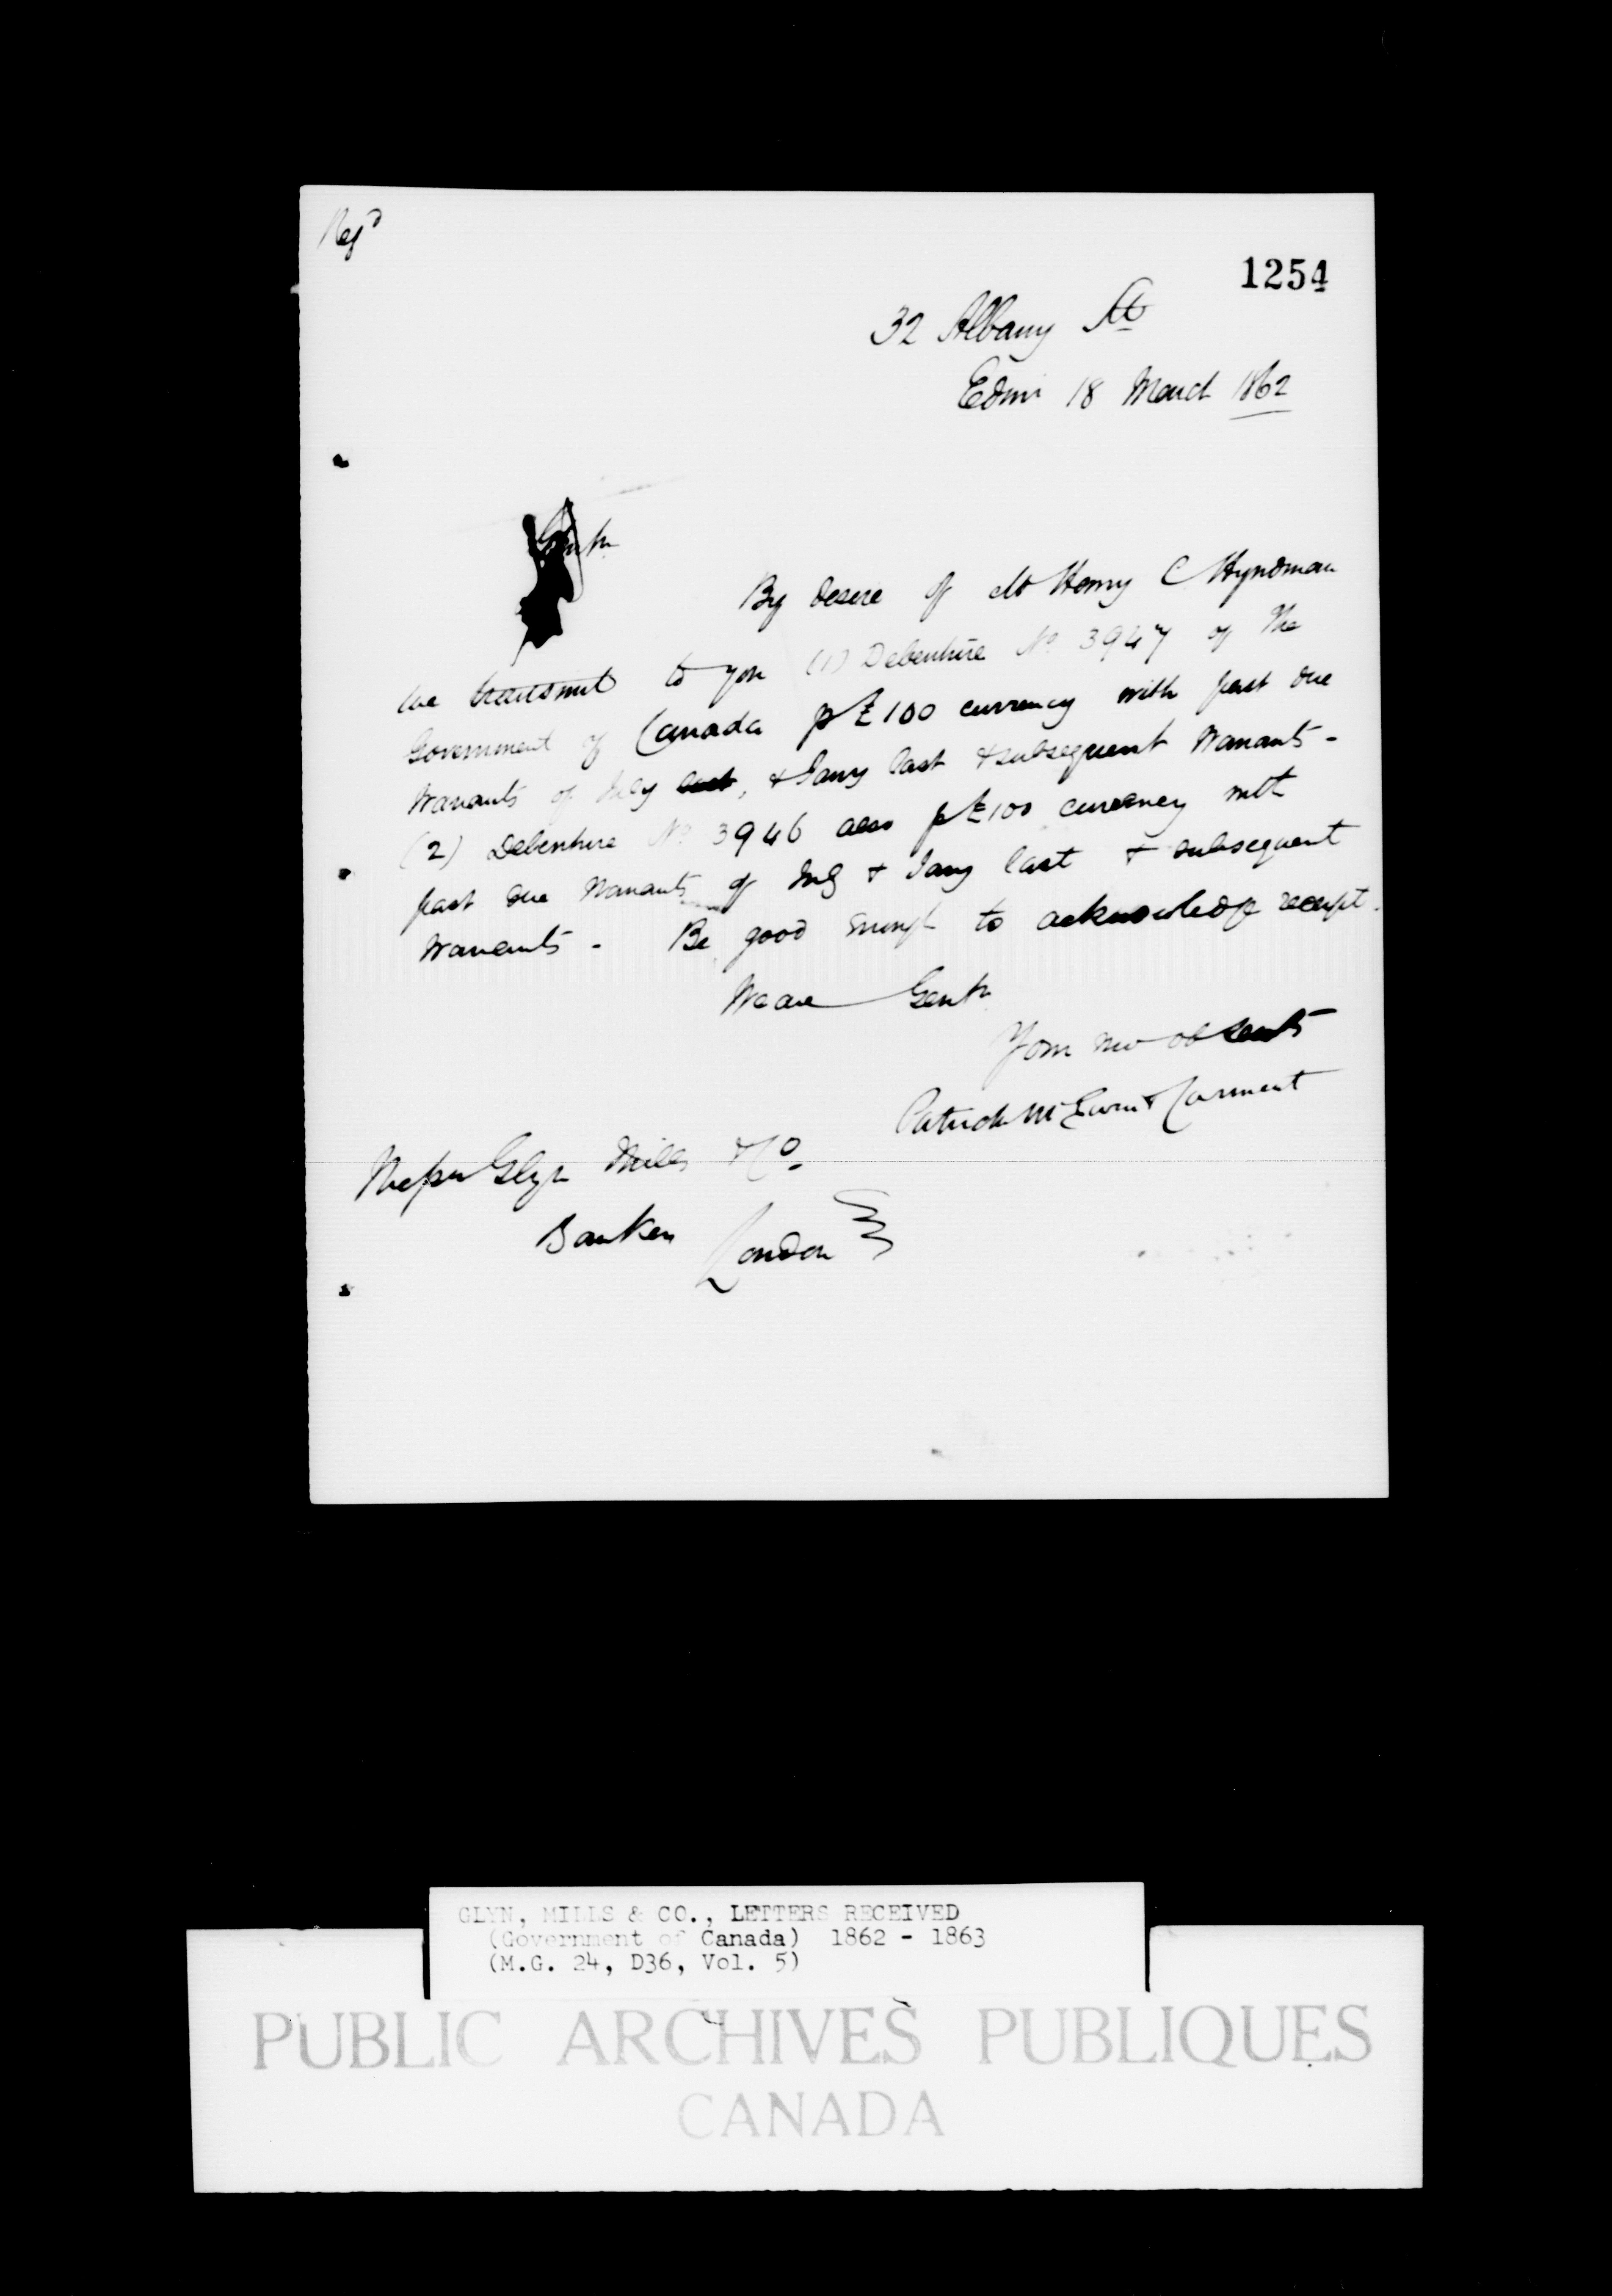 Regd
1254
32 Albany St
Edinr 18 March 1862
Gentn
By desire of Mr Henry C Hyndman
we transmit to you (1) Debenture No 3947 of The
Government of Canada p £100 currency with past due
Warrants of July last, & Jany last & subsequent Warrants -
(2) Debenture No 3946 also p £100 currency with
past due Warrants of July & Jany last & subsequent
Warrants - Be good enough to acknowledge receipt.
We are Gentn
Your mo ob servts
Patrick McEwen & Carment
Messrs Glyn Mills & Co.
Bankers London
GLYN, MILLS & CO., LETTERS RECEIVED
(Government of Canada) 1862 - 1863
(M.G. 24, D36, Vol. 5)
PUBLIC ARCHIVES PUBLIQUES
CANADA